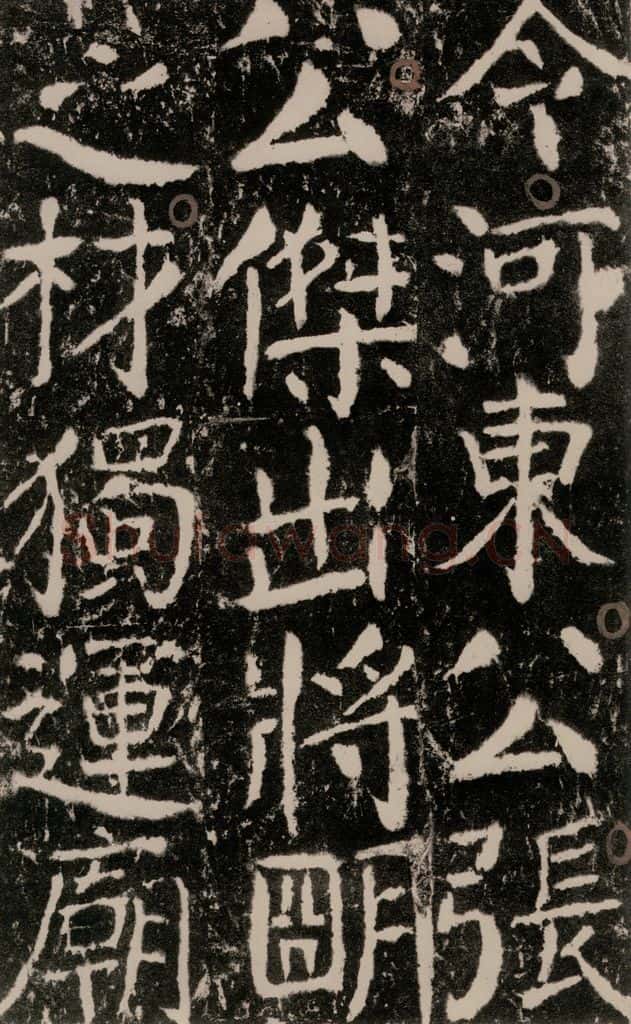 令河東公張
公傑出將朙
之材獨運廟
Shufawang.CN